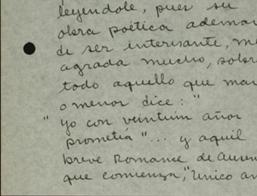 leyendole, pues su
obra poética ademas
de ser interesante, me
agrada mucho, sobre
todo aquello que
o menor dice: "
"yo con veintiun años
prometia"... y aquil
breve Romance de
que comienza, "Unico